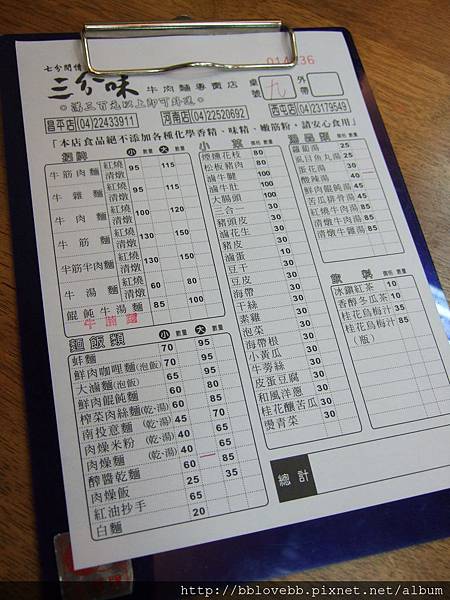 014236
七分閒情
三分味 牛肉麵專賣店
桌號 九 外帶
。滿三百元以上即可外送。
昌平店(04)22433911 河南店(04)22520692 西屯店(04)23179549
「本店食品絕不添加各種化學香精、味精、嫩筋粉,請安心食用」
招牌 小 數量 大 數量
牛筋肉麵 紅燒 清燉 95 115
牛雜麵 紅燒 清燉 95 115
牛肉麵 紅燒 清燉 100 120
牛筋麵 紅燒 清燉 130 150
半筋半肉麵 紅燒 清燉 130 150
牛湯麵 紅燒 清燉 60 80
餛飩牛湯麵 85 100
牛腩麵
麵飯類 小 數量 大 數量
蚌麵 70 95
鮮肉咖哩麵(泡飯) 70 95
大滷麵(泡飯) 65 95
鮮肉餛飩麵 60 80
榨菜肉絲麵(乾、湯) 65 90
南投意麵 (乾、湯) 45
肉燥米粉 (乾、湯) 40 65
肉燥麵 (乾、湯) 40 65
醡醬乾麵 60 85
肉燥飯 25 35
紅油抄手 65
白麵 20
小菜 價格 數量
煙燻花枝 80
松板豬肉 100
滷牛腱 100
滷牛肚 100
大腸頭 100
三合一
豬頭皮 30
滷花生 30
豬皮 30
滷蛋 10
豆干 30
豆皮 30
海帶 30
干絲 30
素雞 30
泡菜 30
海帶根 30
小黃瓜 30
牛蒡絲 30
皮蛋豆腐 30
和風洋蔥 30
桂花釀苦瓜 30
燙青菜 30
湯品類 價格 數量
蘿蔔湯 25
虱目魚丸湯 25
蛋花湯 30
酸辣湯 40
鮮肉餛飩湯 45
苦瓜排骨湯 45
紅燒牛肉湯 85
清燉牛肉湯 85
清燉牛雜湯 85
飲料 價格 數量
冰鎮紅茶 10
香醇冬瓜茶 10
桂花烏梅汁 35
桂花烏梅汁 85
(瓶)
總計
http://bblovebb.pixnet.net/album